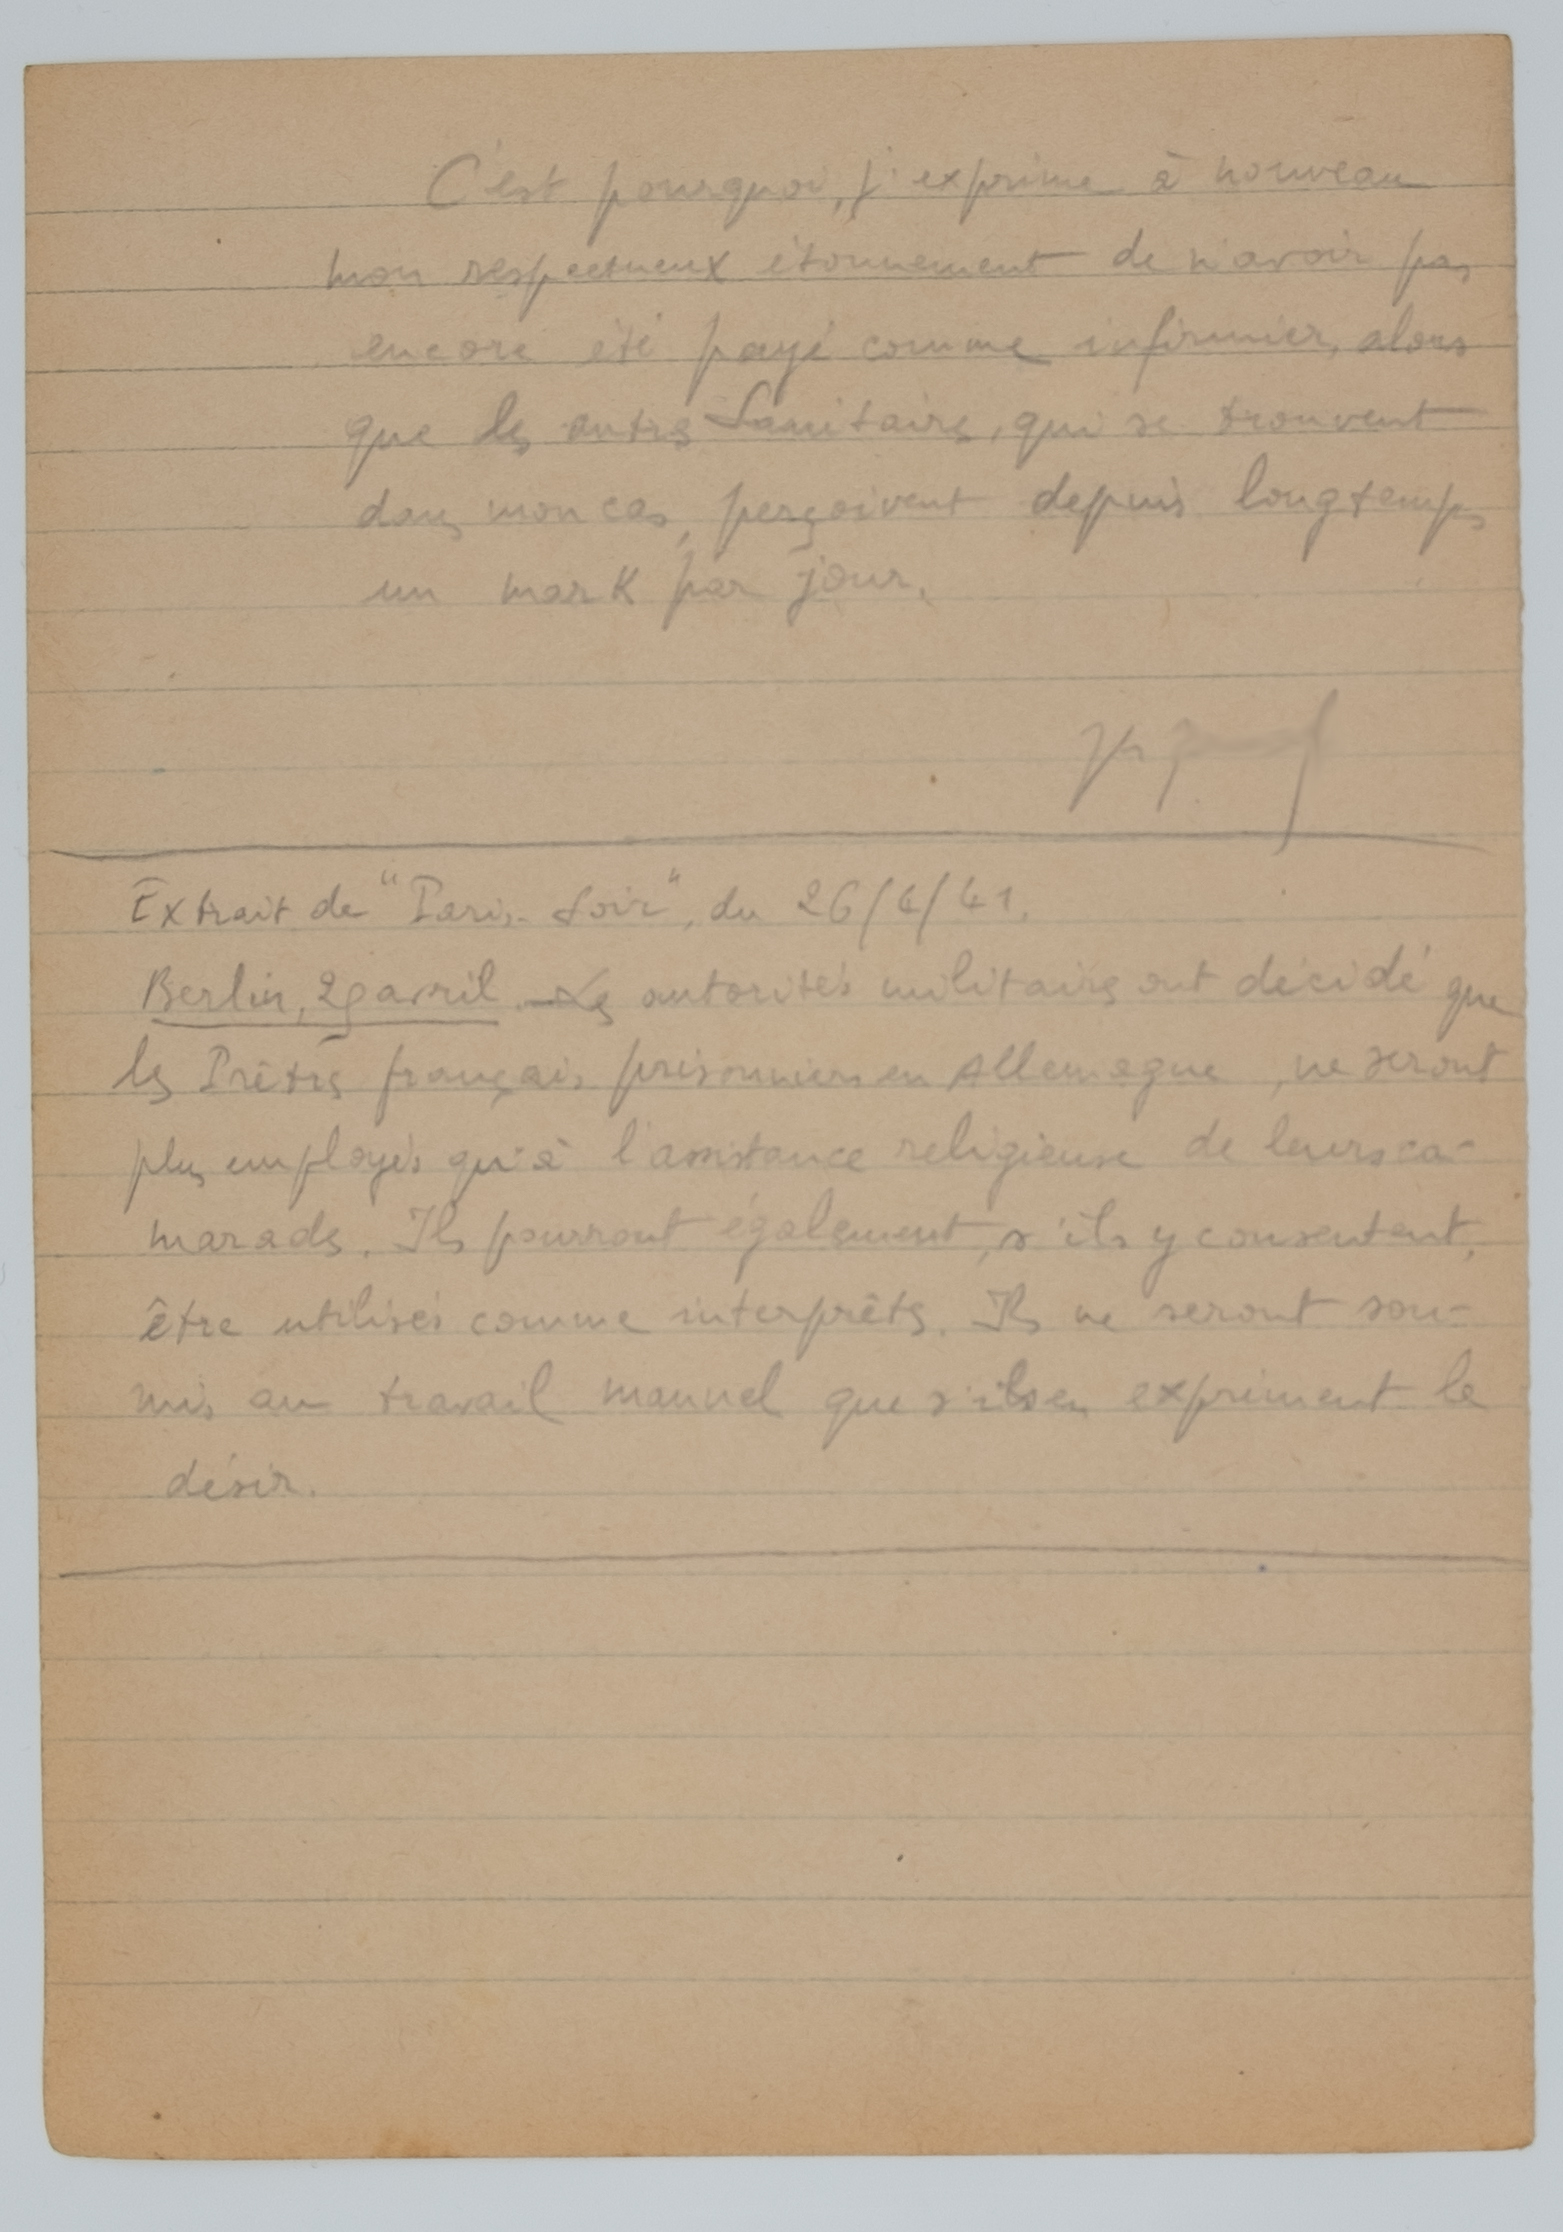 C'est pourquoi, j'exprime à nouveau
mon respectueux étonnement de n'avoir pas
encore été payé comme infirmier, alors
que les autres Sanitaires, qui se trouvent
dans mon cas, perçoivent depuis longtemps
un mark par jour.
Extrait de "Paris-Soir", du 26/4/41.
Berlin, 29 avril. — Les autorités militaires ont décidé que
les Prêtres français prisonniers en Allemagne, ne seront
plus employés qu'à l'assistance religieuse de leurs ca-
marades. Ils pourront également, s'ils y consentent,
être utilisés comme interprètes. Ils ne seront sou-
mis au travail manuel que s'ils en expriment le
désir.